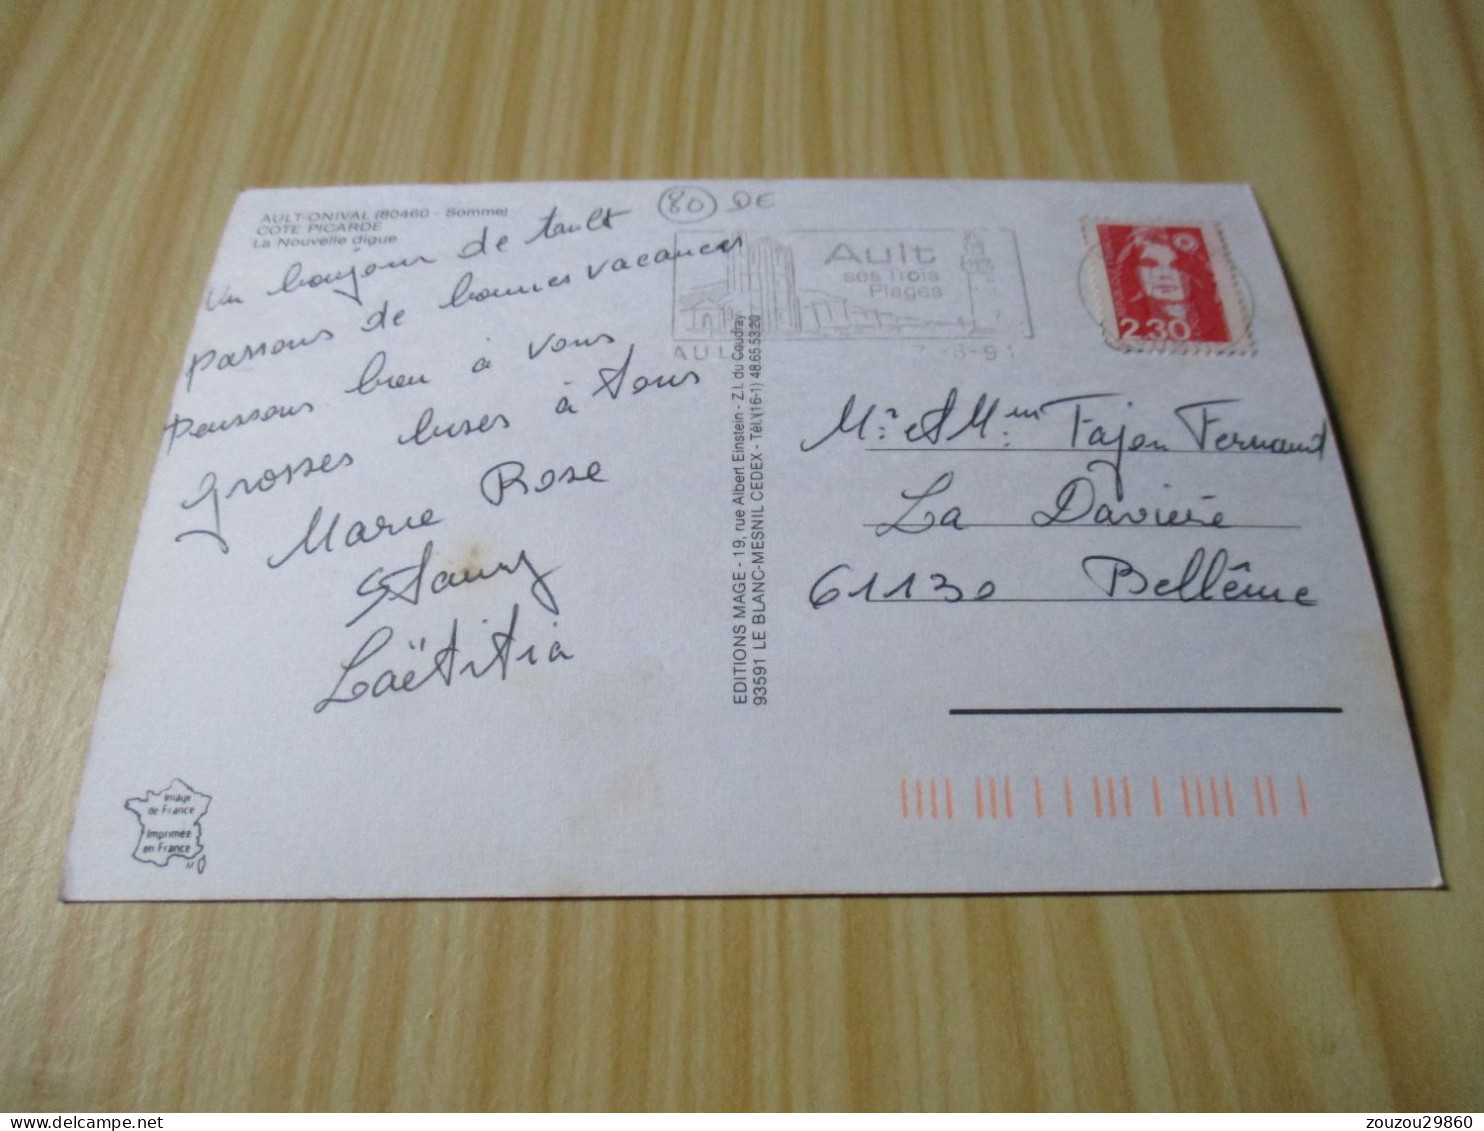 AULT-ONIVAL (80460 - Somme)
COTE PICARDE
La Nouvelle digue
80 DE
Un bonjour de tault
passons de bonnes vacances
pensons bien à vous
grosses bises à tous
Marie Rose
Stany
Laëtitia
Image
de France
Imprimée
en France
EDITIONS MAGE - 19, rue Albert Einstein - Z.I. du Coudray
93591 LE BLANC-MESNIL CEDEX - Tél. (16-1) 48.65.53.20
Ault
ses trois
Plages
AUL
-8-91
2,30
Mr et Mme Fajon Fernand
La Davière
61130 Bellême
zouzou29860